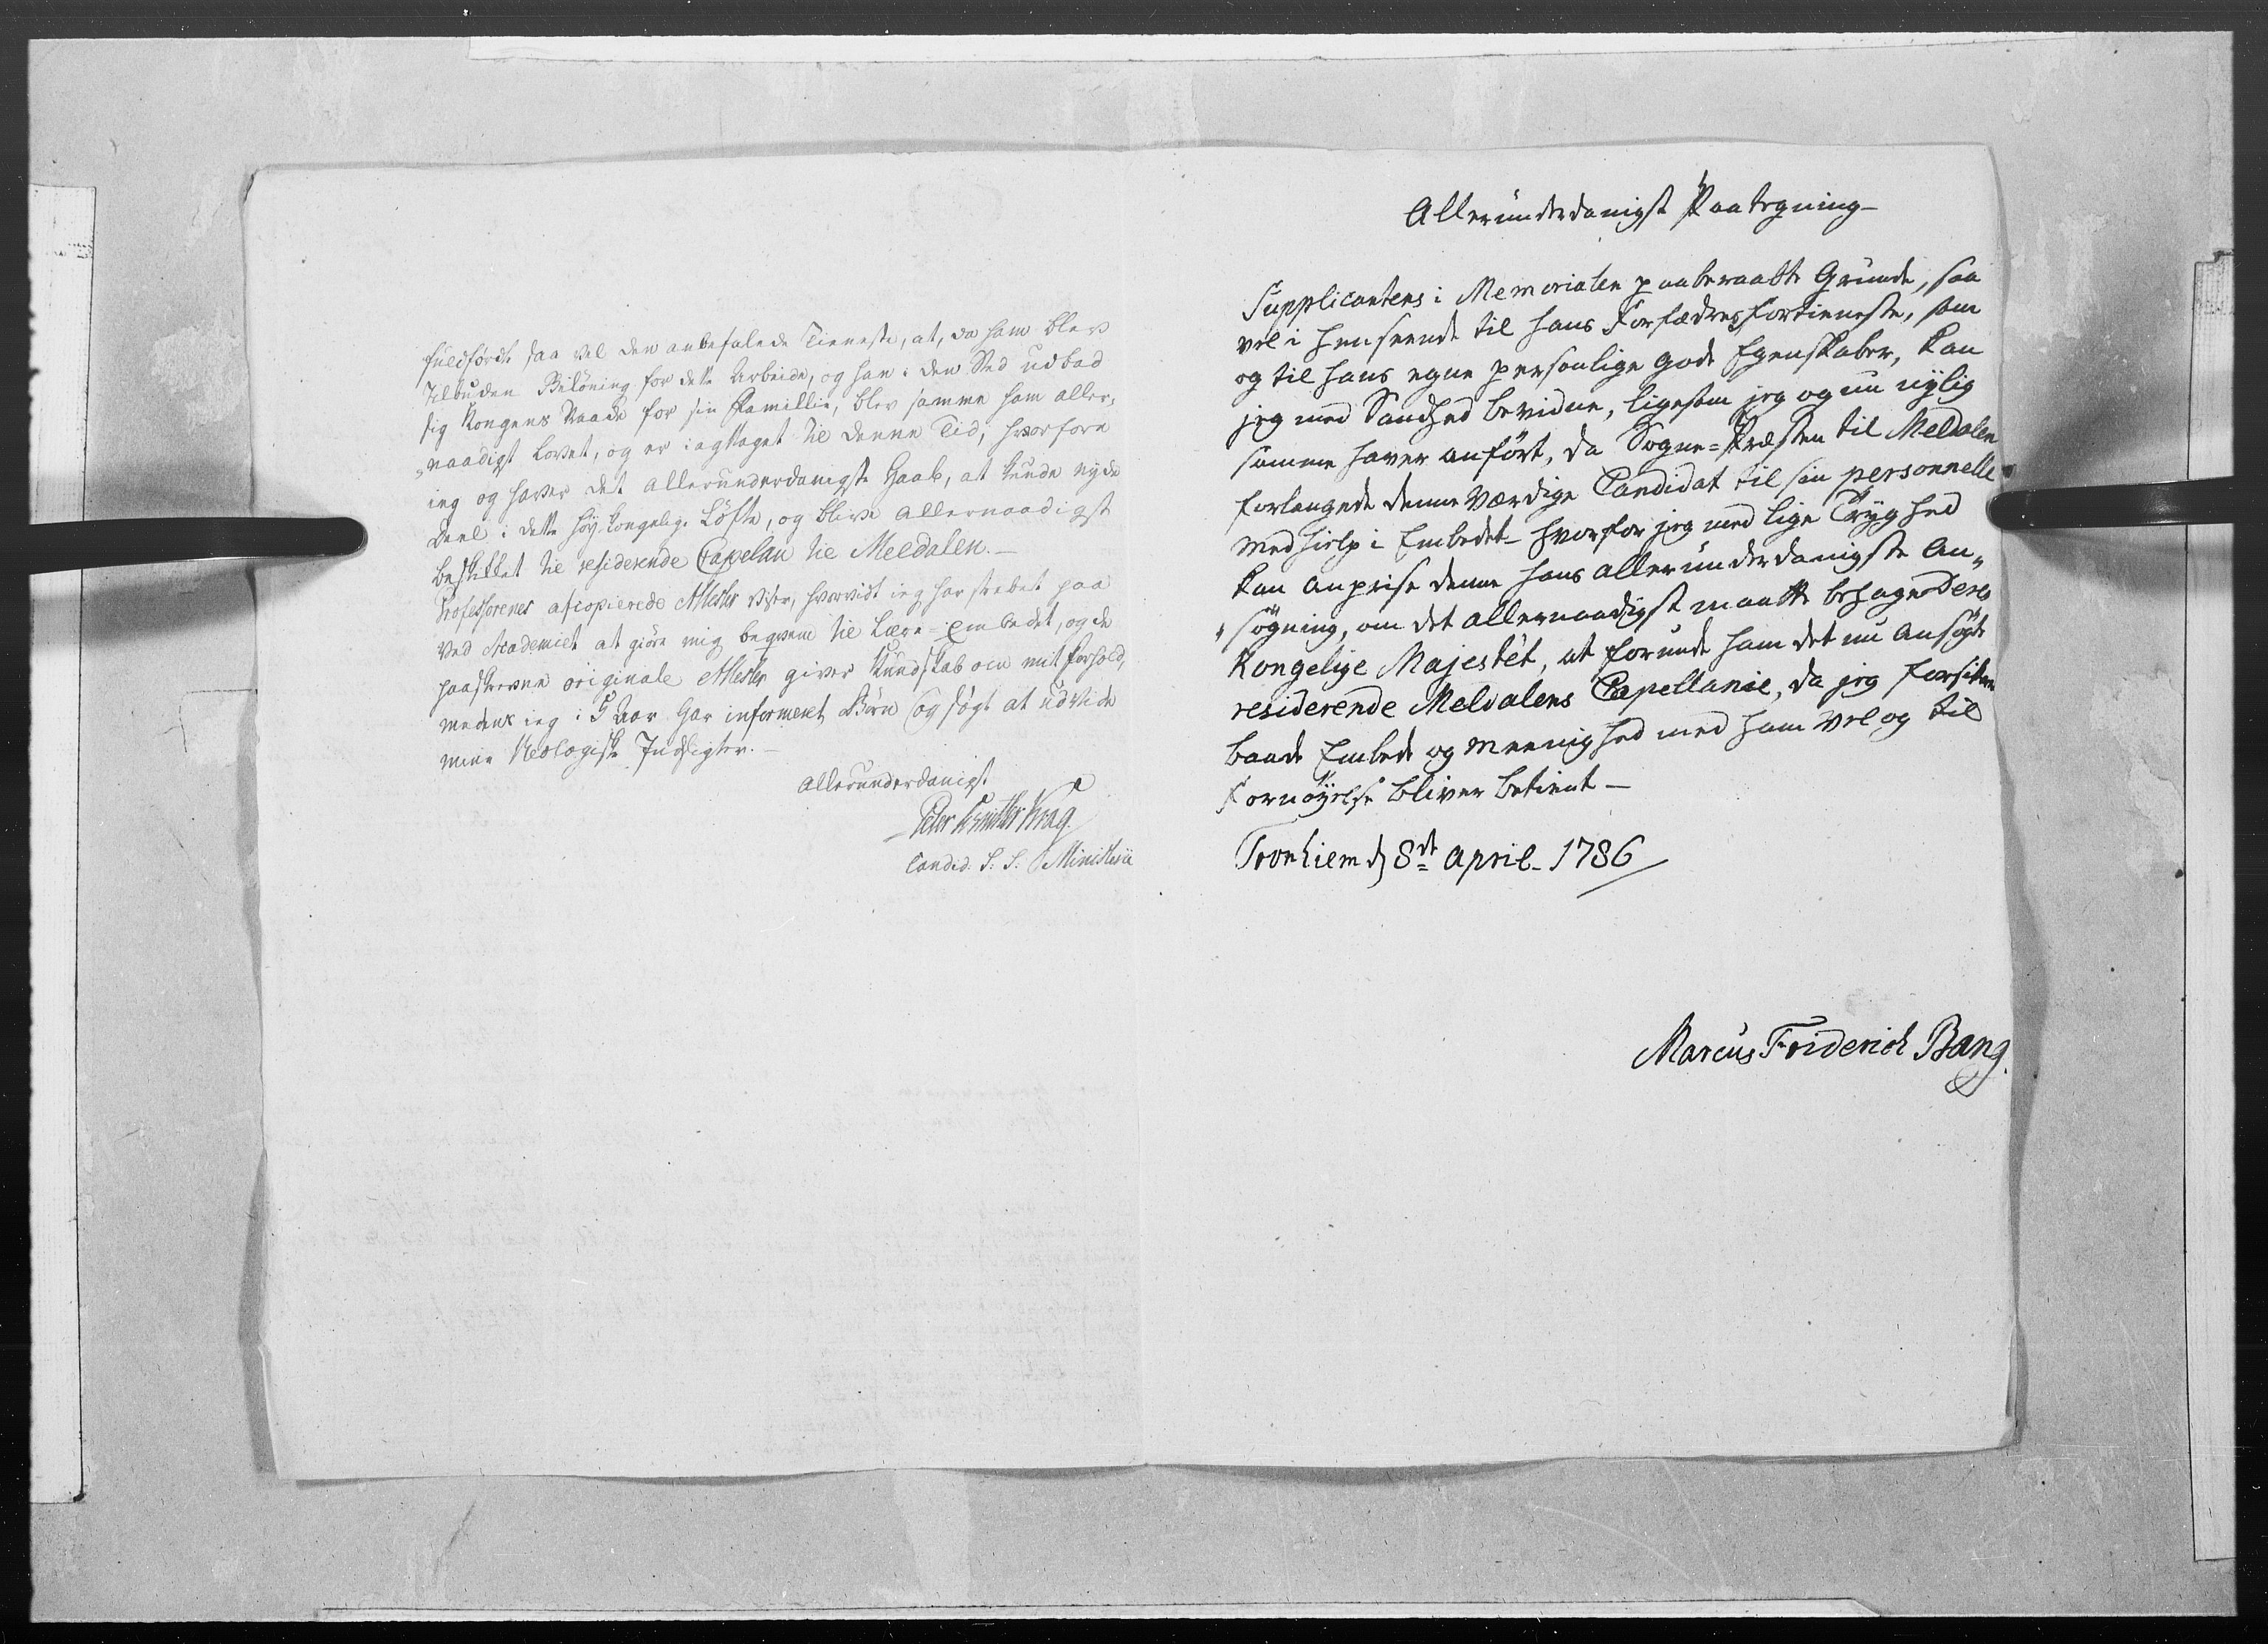 fuldførdt saa vel den anbefalede Tieneste, at, da ham blev
tilbuden Belöning for dette Arbeide, og han i den Sted udbad
sig Kongens Naade for sin Familie, blev samme ham aller„
„naadigst lovet, og er iagttaget til denne Tid; hvorfore
ieg og haver det allerunderdanigste Haab, at kunde nyde
Deel i dette höykongelige Löfte, og blive allernaadigst
beskikket til residerende Capelan til Meldalen. —
Professorenes afcopierede Attester viser, hvorvidt ieg har stræbet paa
ved Academiet at giöre mig beqvem til Lære-Embedet, og de
paaskrevne originale Attester giver Kundskab om mit Forhold,
medens ieg i 5 Aar har informeret Börn og sögt at udvide
mine theologiske Indsigter. —
allerunderdanigst
Peter Krag
Candid. S. S. Ministerii
Alleründerdanigst Paategning —
Supplicantens i Memorialen paaberaabte Grunde, saa
vel i Henseende til hans Forfædres Fortieneste, som
og til hans egne personlige gode Egenskaber, kan
jeg med Sandhed bevidne, ligesom jeg og nu nylig
samme haver anfört, da Sogne-Præsten til Meldalen
forlangede denne værdige Candidat til sin personnelle
Medhielp i Embedet — hvorfor jeg med lige Tryghed
kan anprise denne hans alleründerdanigste An„
„sögning, om det allernaadigst maatte behage Deres
Kongelige Majestét, at forunde ham det nu ansögte
residerende Meldalens Capellanie, da jeg forsikrer
baade Embede og Meenighed med ham vel og til
Fornöyelse bliver betient —
Tronhiem d 8de April 1786
Marcus Friderich Bang.